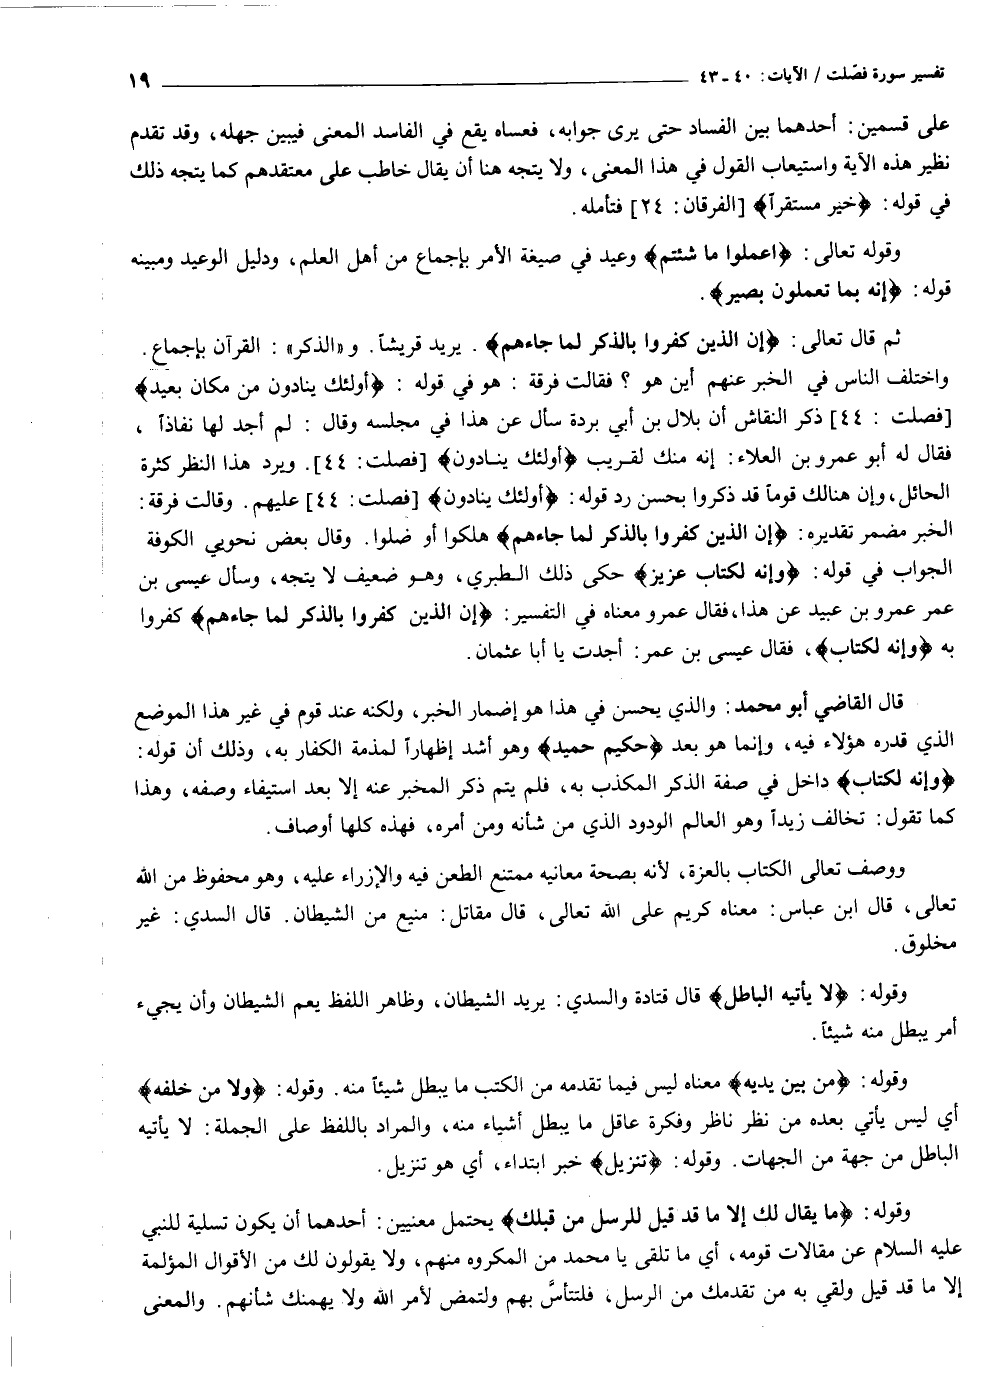 تفسير سورة فصّلت / الآيات: ٤٠ ـ ٤٣ ١٩
على قسمين: أحدهما بين الفساد حتى يرى جوابه، فعساه يقع في الفاسد المعنى فيبين جهله، وقد تقدم
نظير هذه الآية واستيعاب القول في هذا المعنى، ولا يتجه هنا أن يقال خاطب على معتقدهم كما يتجه ذلك
في قوله: ﴿خير مستقراً﴾ [الفرقان: ٢٤] فتأمله.
وقوله تعالى: ﴿اعملوا ما شئتم﴾ وعيد في صيغة الأمر بإجماع من أهل العلم، ودليل الوعيد ومبينه
قوله: ﴿إنه بما تعملون بصير﴾.
ثم قال تعالى: ﴿إن الذين كفروا بالذكر لما جاءهم﴾. يريد قريشاً. و«الذكر»: القرآن بإجماع.
واختلف الناس في الخبر عنهم أين هو ؟ فقالت فرقة : هو في قوله : ﴿أولئك ينادون من مكان بعيد﴾
[فصلت : ٤٤] ذكر النقاش أن بلال بن أبي بردة سأل عن هذا في مجلسه وقال : لم أجد لها نفاذاً ،
فقال له أبو عمرو بن العلاء: إنه منك لقريب ﴿أولئك ينادون﴾ [فصلت: ٤٤]. ويرد هذا النظر كثرة
الحائل، وإن هنالك قوماً قد ذكروا بحسن رد قوله: ﴿أولئك ينادون﴾ [فصلت: ٤٤] عليهم. وقالت فرقة:
الخبر مضمر تقديره: ﴿إن الذين كفروا بالذكر لما جاءهم﴾ هلكوا أو ضلوا. وقال بعض نحويي الكوفة
الجواب في قوله: ﴿وإنه لكتاب عزيز﴾ حكى ذلك الطبري، وهو ضعيف لا يتجه، وسأل عيسى بن
عمر عمرو بن عبيد عن هذا، فقال عمرو معناه في التفسير: ﴿إن الذين كفروا بالذكر لما جاءهم﴾ كفروا
به ﴿وإنه لكتاب﴾، فقال عيسى بن عمر: أجدت يا أبا عثمان.
قال القاضي أبو محمد: والذي يحسن في هذا هو إضمار الخبر، ولكنه عند قوم في غير هذا الموضع
الذي قدره هؤلاء فيه، وإنما هو بعد ﴿حكيم حميد﴾ وهو أشد إظهاراً لمذمة الكفار به، وذلك أن قوله:
﴿وإنه لكتاب﴾ داخل في صفة الذكر المكذب به، فلم يتم ذكر المخبر عنه إلا بعد استيفاء وصفه، وهذا
كما تقول: تخالف زيداً وهو العالم الودود الذي من شأنه ومن أمره، فهذه كلها أوصاف.
ووصف تعالى الكتاب بالعزة، لأنه بصحة معانيه ممتنع الطعن فيه والإزراء عليه، وهو محفوظ من الله
تعالى، قال ابن عباس: معناه كريم على الله تعالى، قال مقاتل: منيع من الشيطان. قال السدي: غير
مخلوق.
وقوله: ﴿لا يأتيه الباطل﴾ قال قتادة والسدي: يريد الشيطان، وظاهر اللفظ يعم الشيطان وأن يجيء
أمر يبطل منه شيئاً.
وقوله: ﴿من بين يديه﴾ معناه ليس فيما تقدمه من الكتب ما يبطل شيئاً منه. وقوله: ﴿ولا من خلفه﴾
أي ليس يأتي بعده من نظر ناظر وفكرة عاقل ما يبطل أشياء منه، والمراد باللفظ على الجملة: لا يأتيه
الباطل من جهة من الجهات. وقوله: ﴿تنزيل﴾ خبر ابتداء، أي هو تنزيل.
وقوله: ﴿ما يقال لك إلا ما قد قيل للرسل من قبلك﴾ يحتمل معنيين: أحدهما أن يكون تسلية للنبي
عليه السلام عن مقالات قومه، أي ما تلقى يا محمد من المكروه منهم، ولا يقولون لك من الأقوال المؤلمة
إلا ما قد قيل ولقي به من تقدمك من الرسل، فلتتأسَّ بهم ولتمض لأمر الله ولا يهمنك شأنهم. والمعنى